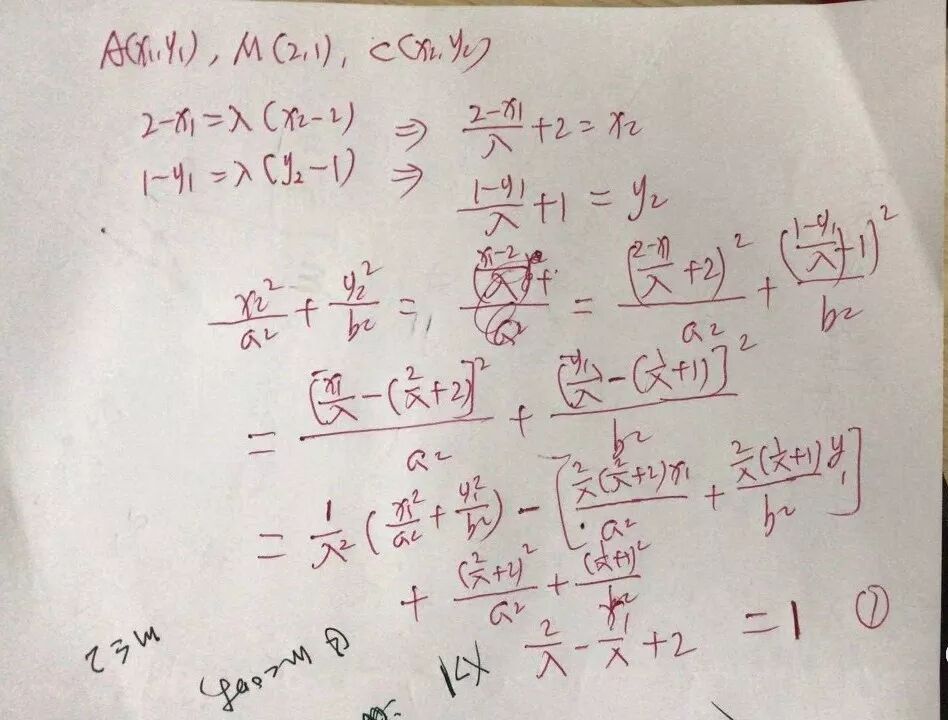 A(x₁,y₁), M(2,1), C(x₂,y₂)
2-x₁=λ(x₂-2) ⇒ (2-x₁)/λ+2=x₂
1-y₁=λ(y₂-1) ⇒ (1-y₁)/λ+1=y₂
x₂²/a²+y₂²/b²= = ((2-x₁)/λ+2)²/a²+((1-y₁)/λ+1)²/b²
=[x₁/λ-(2/λ+2)]²/a²+[y₁/λ-(1/λ+1)]²/b²
=1/λ²(x₁²/a²+y₁²/b²)-[2/λ(2/λ+2)x₁/a²+2/λ(1/λ+1)y₁/b²]
+(2/λ+2)²/a²+(1/λ+1)²/b²
=1 ①
2/λ-x₁/λ+2